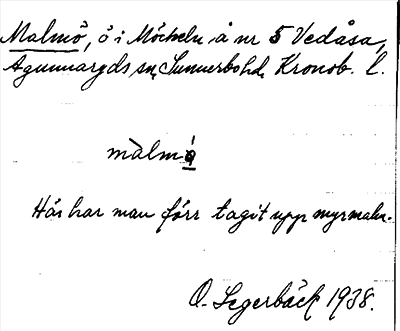 Malmö, ö i Möckeln å nr 5 Vedåsa,
Agunnaryds sn, Sunnerbo hd, Kronob. l.
màlmö̀
Här har man förr tagit upp myrmalm.
O. Segerbäck 1938.